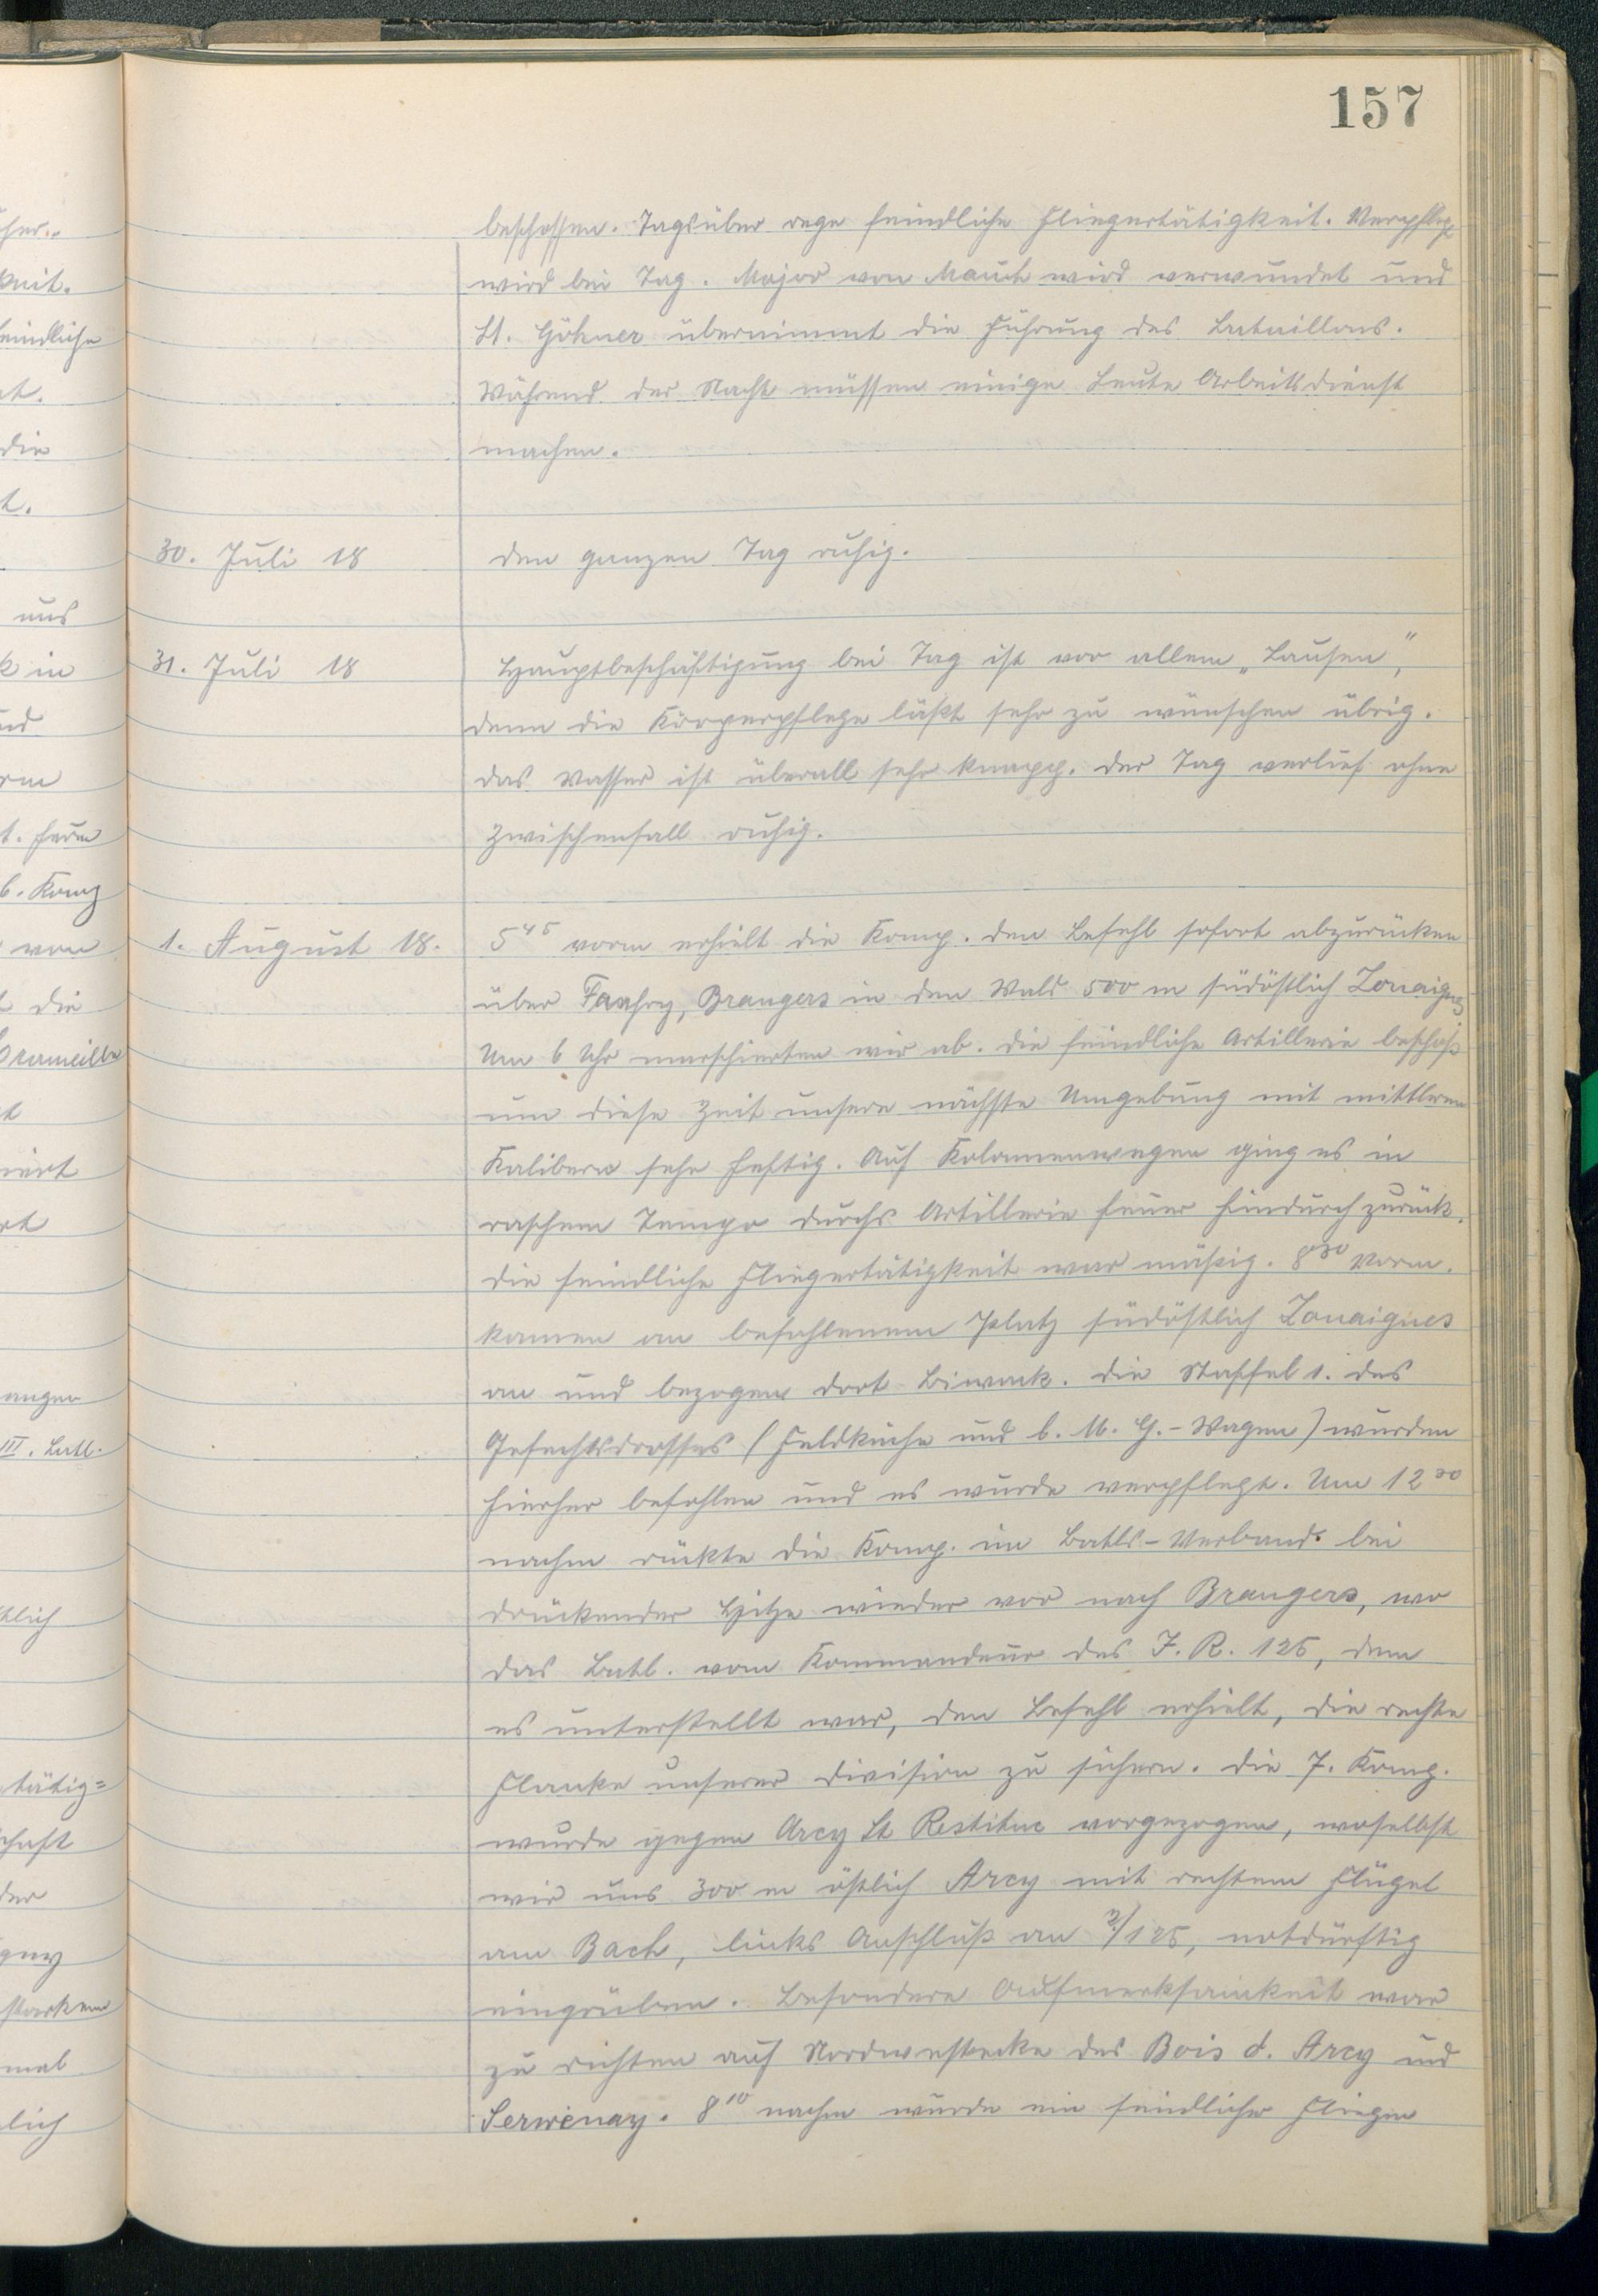 157
beschossen. Tagsüber rege feindliche Fliegertätigkeit. Verpflegt
wird bei Tag. Major von Mauch wird verwundet und
Lt. Göhner übernimmt die Führung des Bataillons.
Während der Nacht müssen einige Leute Arbeitsdienst
machen.
30. Juli 18 den ganzen Tag ruhig.
31. Juli 18 Hauptbeschäftigung bei Tag ist vor allem „Lausen",
denn die Körperpflege läßt sehr zu wünschen übrig.
das Wasser ist überall sehr knapp. der Tag verlief ohne
Zwischenfall ruhig.
1. August 18. 5 45 vorm erhielt die Komp. den Befehl sofort abzurücken
über Branges in den Wald 500 m südöstlich
Um 6 Uhr marschierten wir ab. die feindliche Artillerie beschoß
um diese Zeit unsere nächste Umgebung mit mittleren
Kalibern sehr heftig. Auf Kolonnenwegen ging es in
raschem Tempo durchs Artillerie feuer hindurch zurück.
die feindliche Fliegertätigkeit war mäßig. 8 30 vorm.
kamen an befohlenem Platz südöstlich Louaignes
an und bezogen dort Biwack. die Staffel 1. des
Gefechtstrosses (Feldküche und l. M. G.-Wagen) wurden
hierher befohlen und es wurde verpflegt. Um 12 30
nachm rückte die Komp. im Batls-Verband bei
drückender Hitze wieder vor nach Brangers, wo
das Batl. vom Kommandeur des I. R. 125, dem
es unterstellt war, den Befehl erhielt, die rechte
Flanke unserer Division zu sichern. die 7. Komp.
wurde gegen Arcy St Restitue vorgezogen, woselbst
wir uns 300 m östlich Arcy mit rechtem Flügel
am Bach, links Anschluß an /125, notdürftig
eingruben. Besondere Aufmerksamkeit war
zu richten auf Nordwestecke des Bois d. Arcy und
Serwenay. 8 10 nachm wurde ein feindlicher Flieger